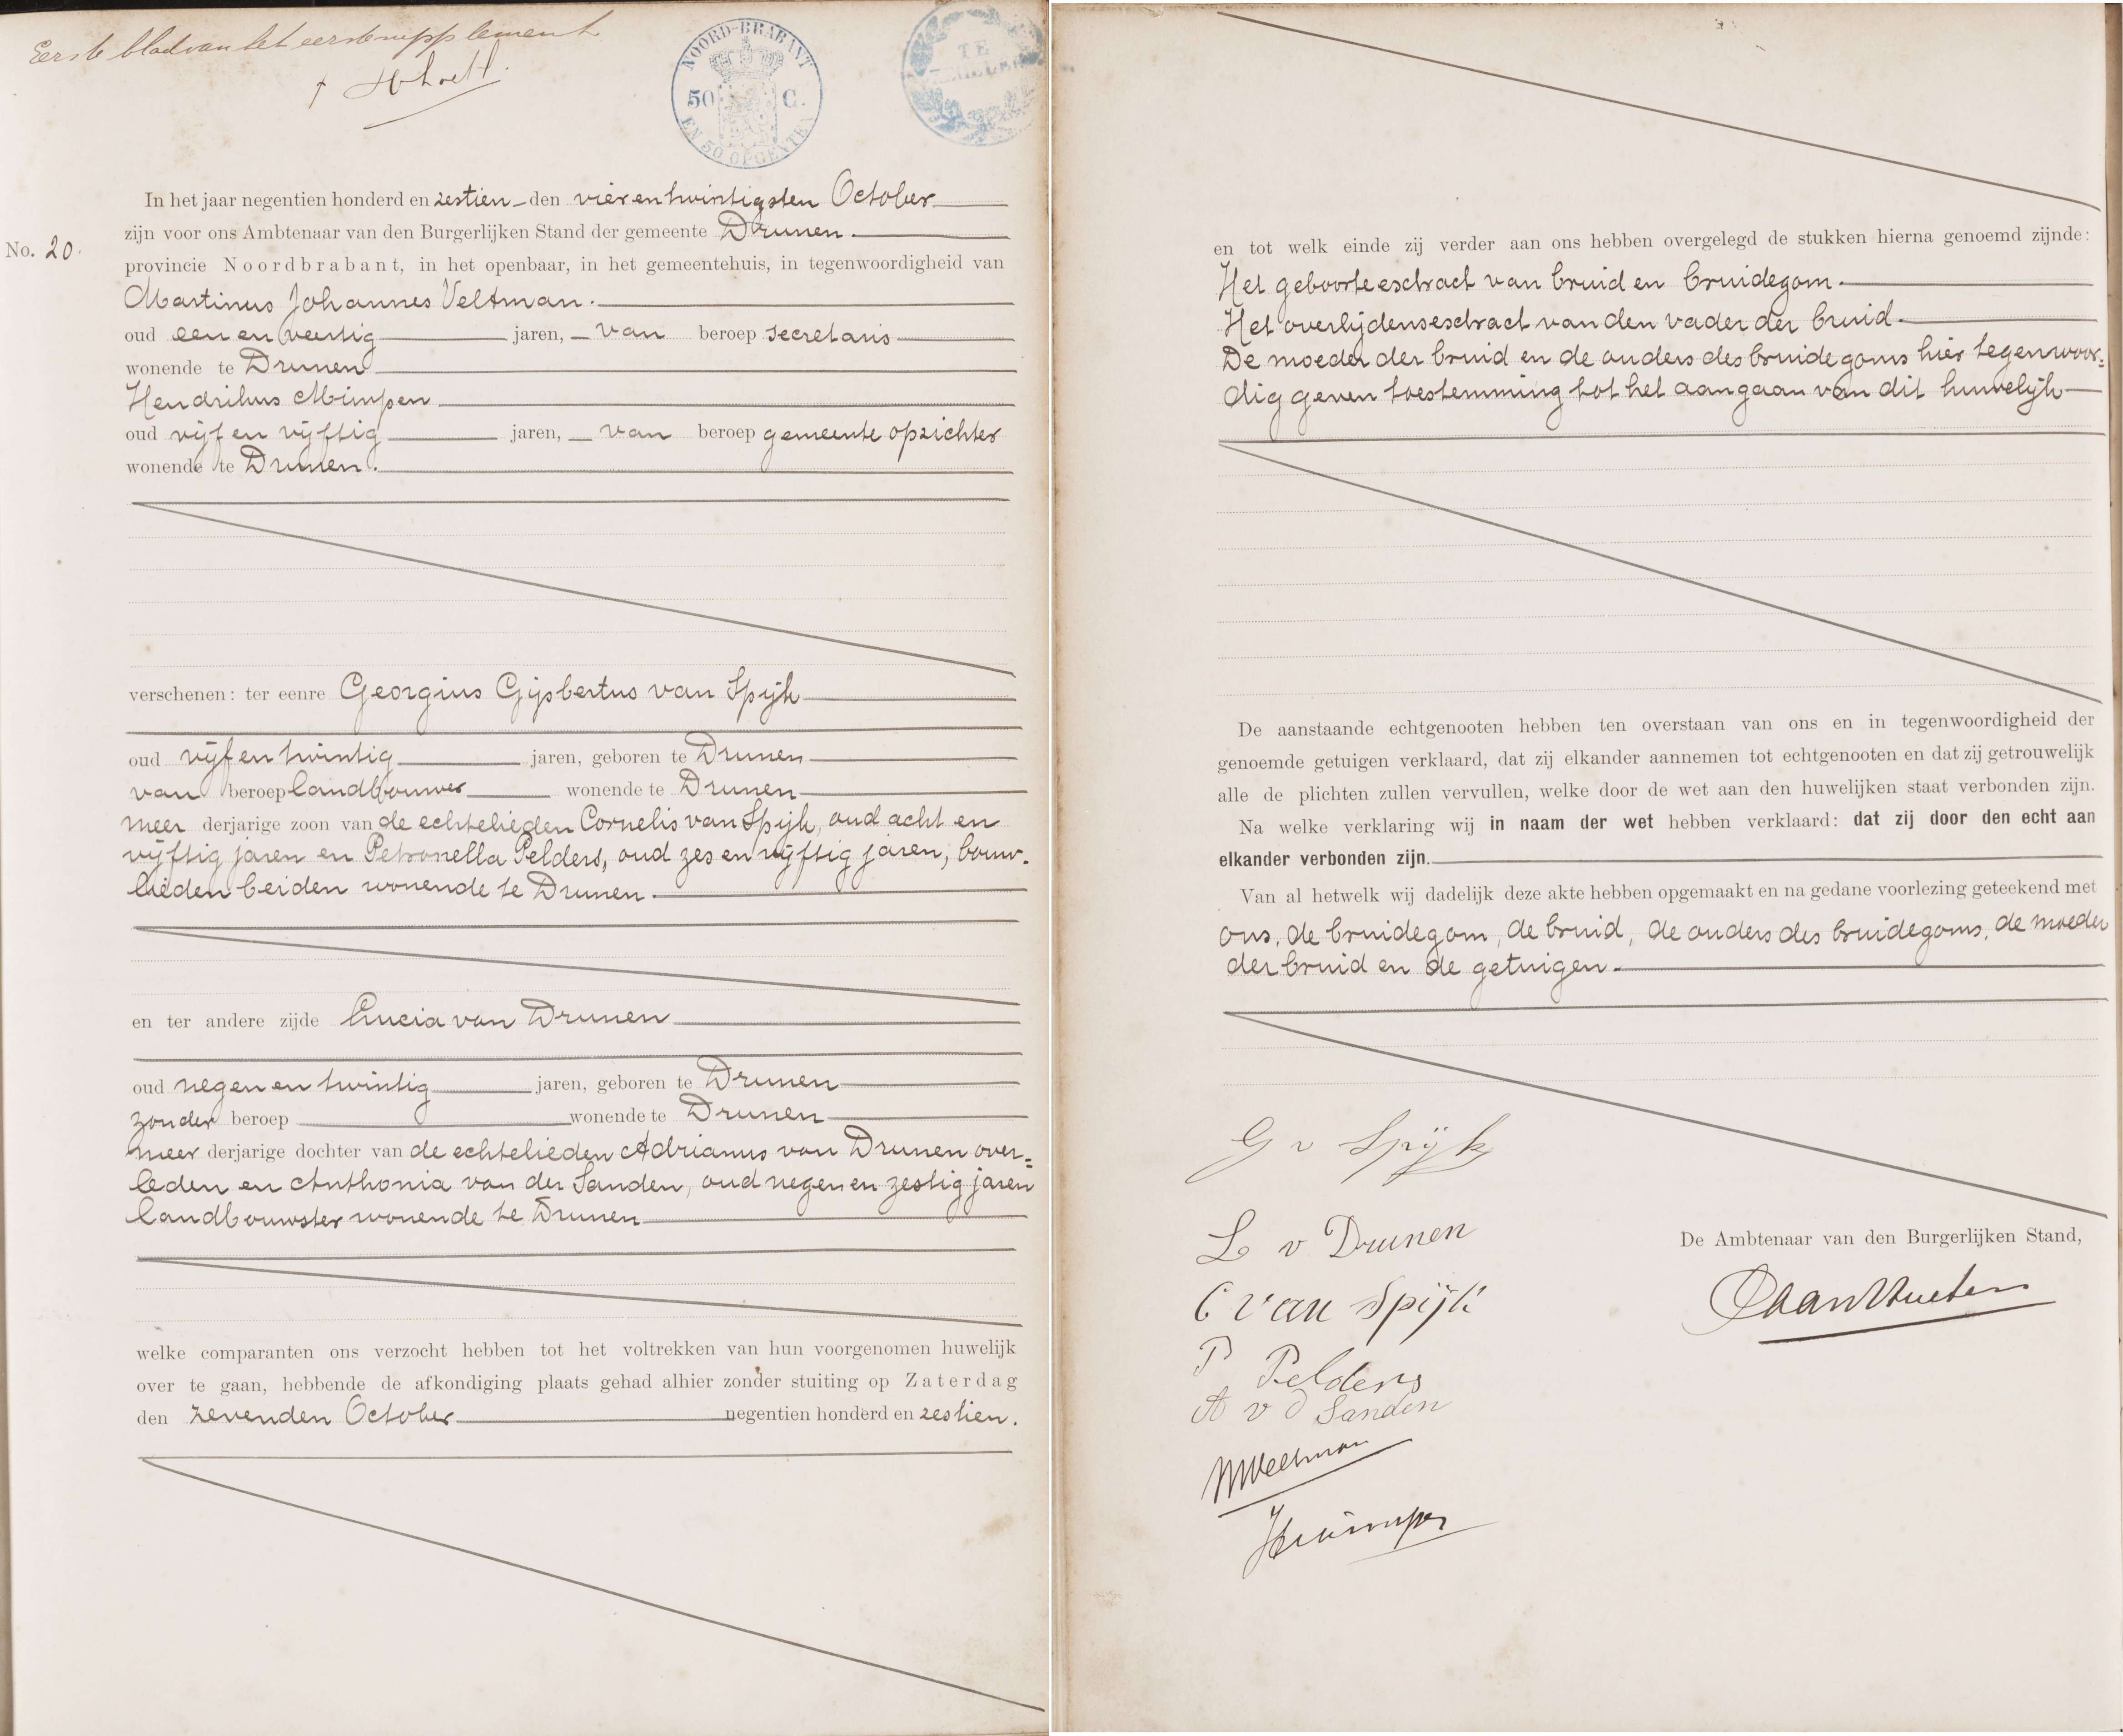 Eerste blad van het eerste supplement
NOORD-BRABANT
50 C.
EN 50 OPCENTEN
TE
In het jaar negentien honderd en zestien - den vierentwintigsten October
zijn voor ons Ambtenaar van den Burgerlijken Stand der gemeente Drunen.
No. 20.
provincie Noordbrabant, in het openbaar, in het gemeentehuis, in tegenwoordigheid van
Martinus Johannes Veltman.
oud een en veertig jaren, - van beroep secretaris
wonende te Drunen
Hendrikus Mimpen
oud vijf en vijftig jaren, - van beroep gemeente opzichter
wonende te Drunen.
verschenen: ter eenre Georgius Gijsbertus van Spijk
oud vijf en twintig jaren, geboren te Drunen
van beroep landbouwer wonende te Drunen
meer derjarige zoon van de echtelieden Cornelis van Spijk, oud acht en
vijftig jaren en Petronella Pelders, oud zes en vijftig jaren, bouw-
lieden beiden wonende te Drunen.
en ter andere zijde Lucia van Drunen
oud negen en twintig jaren, geboren te Drunen
zonder beroep wonende te Drunen
meer derjarige dochter van de echtelieden Adrianus van Drunen over=
leden en Anthonia van der Sanden, oud negen en zestig jaren
landbouwster wonende te Drunen
welke comparanten ons verzocht hebben tot het voltrekken van hun voorgenomen huwelijk
over te gaan, hebbende de afkondiging plaats gehad alhier zonder stuiting op Zaterdag
den zevenden October negentien honderd en zestien.
en tot welk einde zij verder aan ons hebben overgelegd de stukken hierna genoemd zijnde:
Het geboorteextract van bruid en bruidegom.
Het overlijdensextract van den vader der bruid.
De moeder der bruid en de ouders des bruidegoms hier tegenwoor=
dig geven toestemming tot het aangaan van dit huwelijk
De aanstaande echtgenooten hebben ten overstaan van ons en in tegenwoordigheid der
genoemde getuigen verklaard, dat zij elkander aannemen tot echtgenooten en dat zij getrouwelijk
alle de plichten zullen vervullen, welke door de wet aan den huwelijken staat verbonden zijn.
Na welke verklaring wij in naam der wet hebben verklaard: dat zij door den echt aan
elkander verbonden zijn.
Van al hetwelk wij dadelijk deze akte hebben opgemaakt en na gedane voorlezing geteekend met
ons, de bruidegom, de bruid, de ouders des bruidegoms, de moeder
der bruid en de getuigen.
G v Spijk
L v Drunen
De Ambtenaar van den Burgerlijken Stand,
C van Spijk
P Pelders
A v d Sanden
MJVeltman
HMimpen